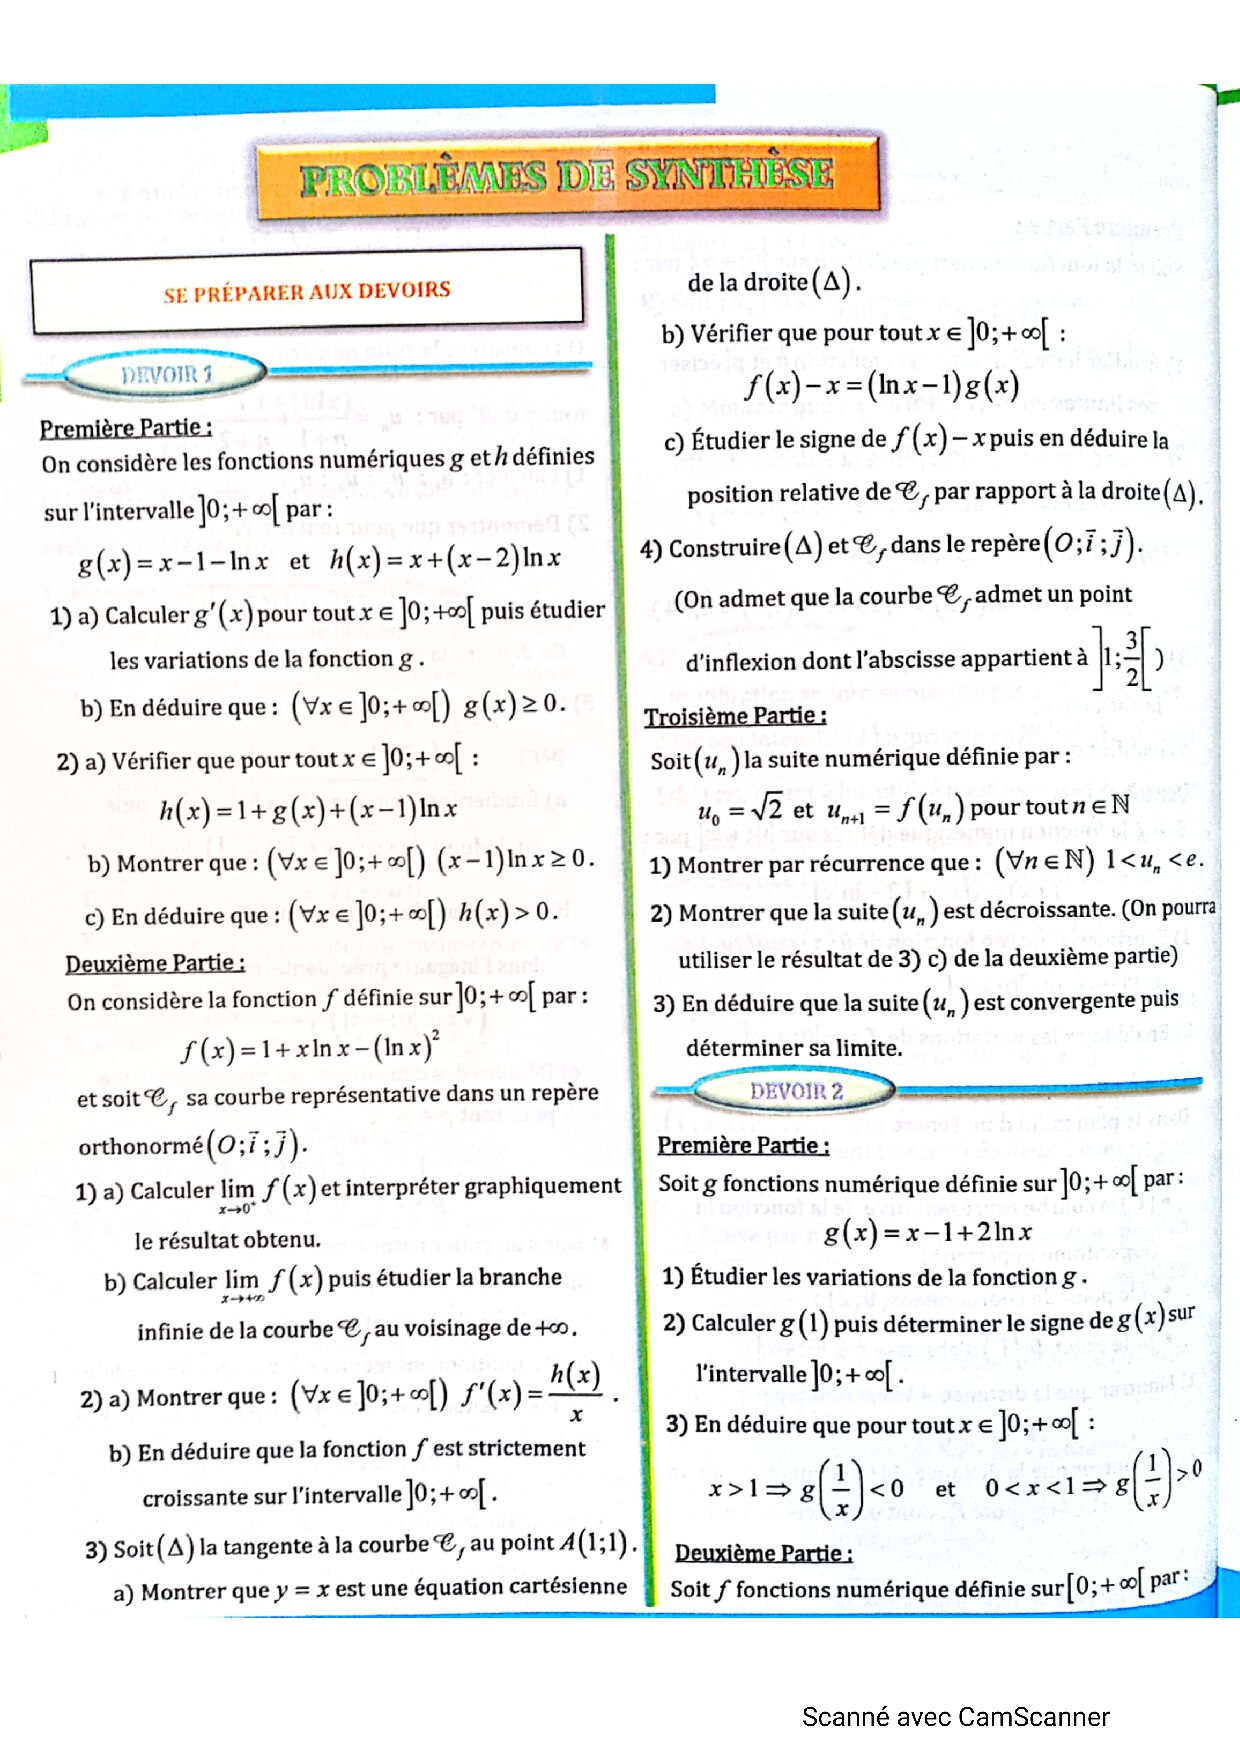 PROBLÈMES DE SYNTHÈSE
SE PRÉPARER AUX DEVOIRS
DEVOIR 1
Première Partie :
On considère les fonctions numériques g et h définies
sur l'intervalle ]0;+∞[ par :
g(x) = x−1−ln x et h(x) = x+(x−2)ln x
1) a) Calculer g′(x) pour tout x ∈ ]0;+∞[ puis étudier
les variations de la fonction g .
b) En déduire que : (∀x ∈ ]0;+∞[) g(x) ≥ 0.
2) a) Vérifier que pour tout x ∈ ]0;+∞[ :
h(x) = 1+g(x)+(x−1)ln x
b) Montrer que : (∀x ∈ ]0;+∞[) (x−1)ln x ≥ 0.
c) En déduire que : (∀x ∈ ]0;+∞[) h(x) > 0.
Deuxième Partie :
On considère la fonction f définie sur ]0;+∞[ par :
f(x) = 1+x ln x−(ln x)²
et soit 𝒞_f sa courbe représentative dans un repère
orthonormé (O; i⃗ ; j⃗).
1) a) Calculer lim x→0⁺ f(x) et interpréter graphiquement
le résultat obtenu.
b) Calculer lim x→+∞ f(x) puis étudier la branche
infinie de la courbe 𝒞_f au voisinage de +∞.
2) a) Montrer que : (∀x ∈ ]0;+∞[) f′(x) = h(x)/x .
b) En déduire que la fonction f est strictement
croissante sur l'intervalle ]0;+∞[.
3) Soit (Δ) la tangente à la courbe 𝒞_f au point A(1;1).
a) Montrer que y = x est une équation cartésienne
de la droite (Δ).
b) Vérifier que pour tout x ∈ ]0;+∞[ :
f(x)−x = (ln x−1)g(x)
c) Étudier le signe de f(x)−x puis en déduire la
position relative de 𝒞_f par rapport à la droite (Δ).
4) Construire (Δ) et 𝒞_f dans le repère (O; i⃗ ; j⃗).
(On admet que la courbe 𝒞_f admet un point
d'inflexion dont l'abscisse appartient à ]1; 3/2[ )
Troisième Partie :
Soit (u_n) la suite numérique définie par :
u_0 = √2 et u_{n+1} = f(u_n) pour tout n ∈ ℕ
1) Montrer par récurrence que : (∀n ∈ ℕ) 1 < u_n < e.
2) Montrer que la suite (u_n) est décroissante. (On pourra
utiliser le résultat de 3) c) de la deuxième partie)
3) En déduire que la suite (u_n) est convergente puis
déterminer sa limite.
DEVOIR 2
Première Partie :
Soit g fonctions numérique définie sur ]0;+∞[ par :
g(x) = x−1+2ln x
1) Étudier les variations de la fonction g .
2) Calculer g(1) puis déterminer le signe de g(x) sur
l'intervalle ]0;+∞[.
3) En déduire que pour tout x ∈ ]0;+∞[ :
x > 1 ⇒ g(1/x) < 0 et 0 < x < 1 ⇒ g(1/x) > 0
Deuxième Partie :
Soit f fonctions numérique définie sur [0;+∞[ par :
Scanné avec CamScanner